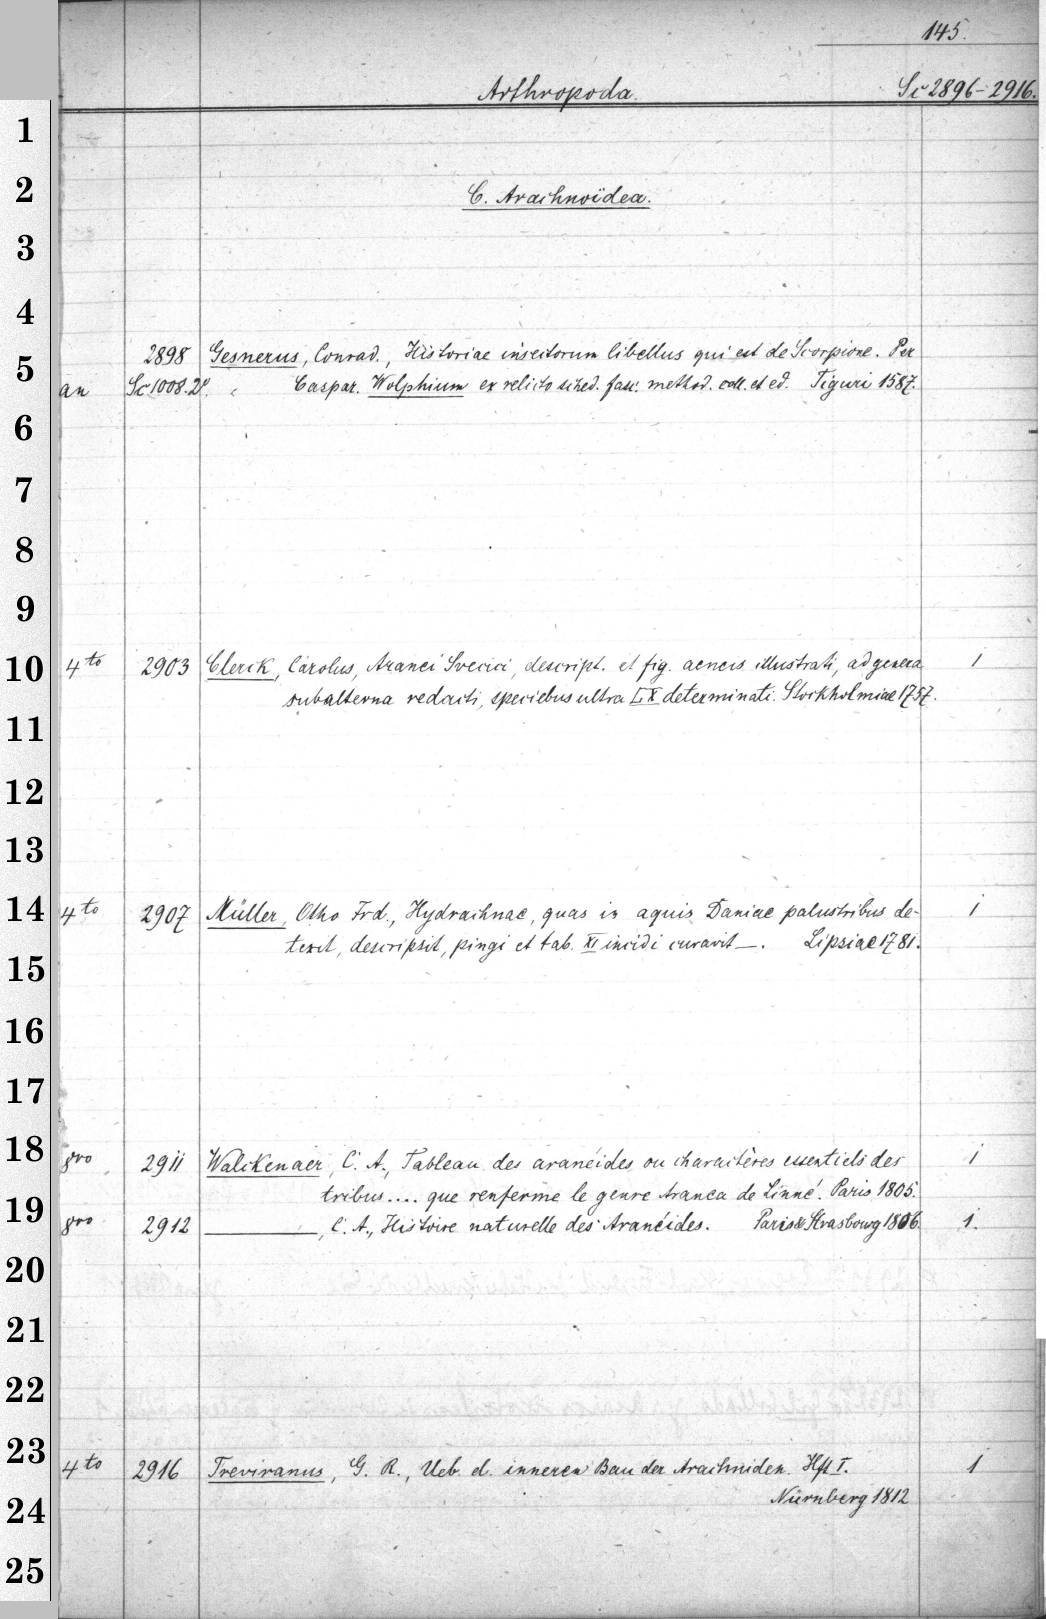 145.
Arthropoda. Sc 2896-2916.
C. Arachnoïdea.
2898 Gesnerus, Conrad., Historiae insectorum libellus qui est de Scorpione. Per
an Sc 1008.2º. Caspar. Wolphium ex relicto sched. fasc. method. coll. et ed. Tiguri 1587.
4to 2903 Clerck, Carolus, Aranei Svecici, descript. et fig. aeneis illustrati, ad genera 1
subalterna redacti, speciebus ultra LX determinati. Stockholmiae 1757.
4to 2907 Müller, Otho Frd., Hydrachnae, quas in aquis Daniae palustribus de- 1
texit, descripsit, pingi et tab. XI incidi curavit —. Lipsiae 1781.
8vo 2911 Walckenaer, C. A., Tableau des aranéides ou charactères essentiels des 1
tribus.... que renferme le genre Aranea de Linné. Paris 1805.
8vo 2912 ———, C. A., Histoire naturelle des Aranéides. Paris & Strasbourg 1806. 1.
4to 2916 Treviranus, G. R., Ueb. d. inneren Bau der Arachniden. Hft I. 1
Nürnberg 1812
1
2
3
4
5
6
7
8
9
10
11
12
13
14
15
16
17
18
19
20
21
22
23
24
25